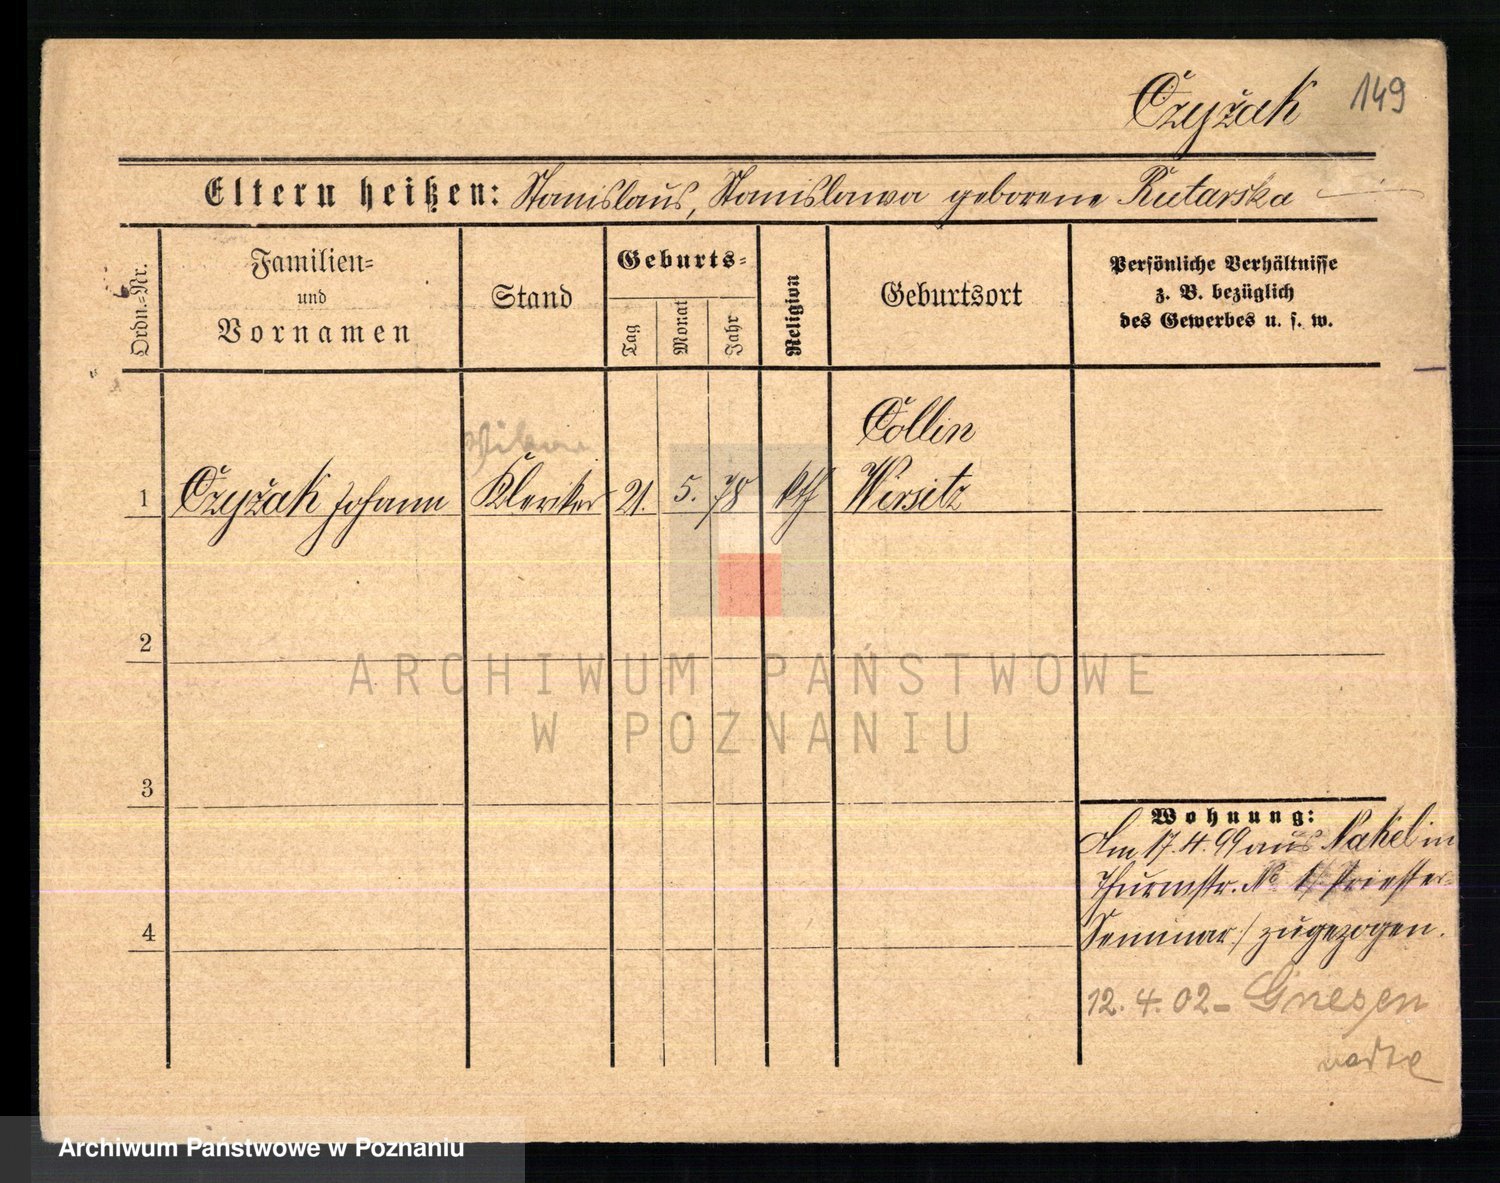 Czyżak 149
Eltern heißen: Stanislaus, Stanislawa geborene Rutarska
Ordn.-Nr.
Familien-
und
Vornamen
Stand
Geburts-
Tag
Monat
Jahr
Religion
Geburtsort
Persönliche Verhältnisse
z. B. bezüglich
des Gewerbes u. s. w.
Collin
1 Czyżak Johann Kleriker 21. 5. 78 kth Wirsitz
2
ARCHIWUM PAŃSTWOWE
W POZNANIU
3
Wohnung:
Am 17.4.99 aus Nakel in
Thurmstr. No Priester-
4
Seminar/ zugezogen.
12.4.02- Gnesen
Archiwum Państwowe w Poznaniu